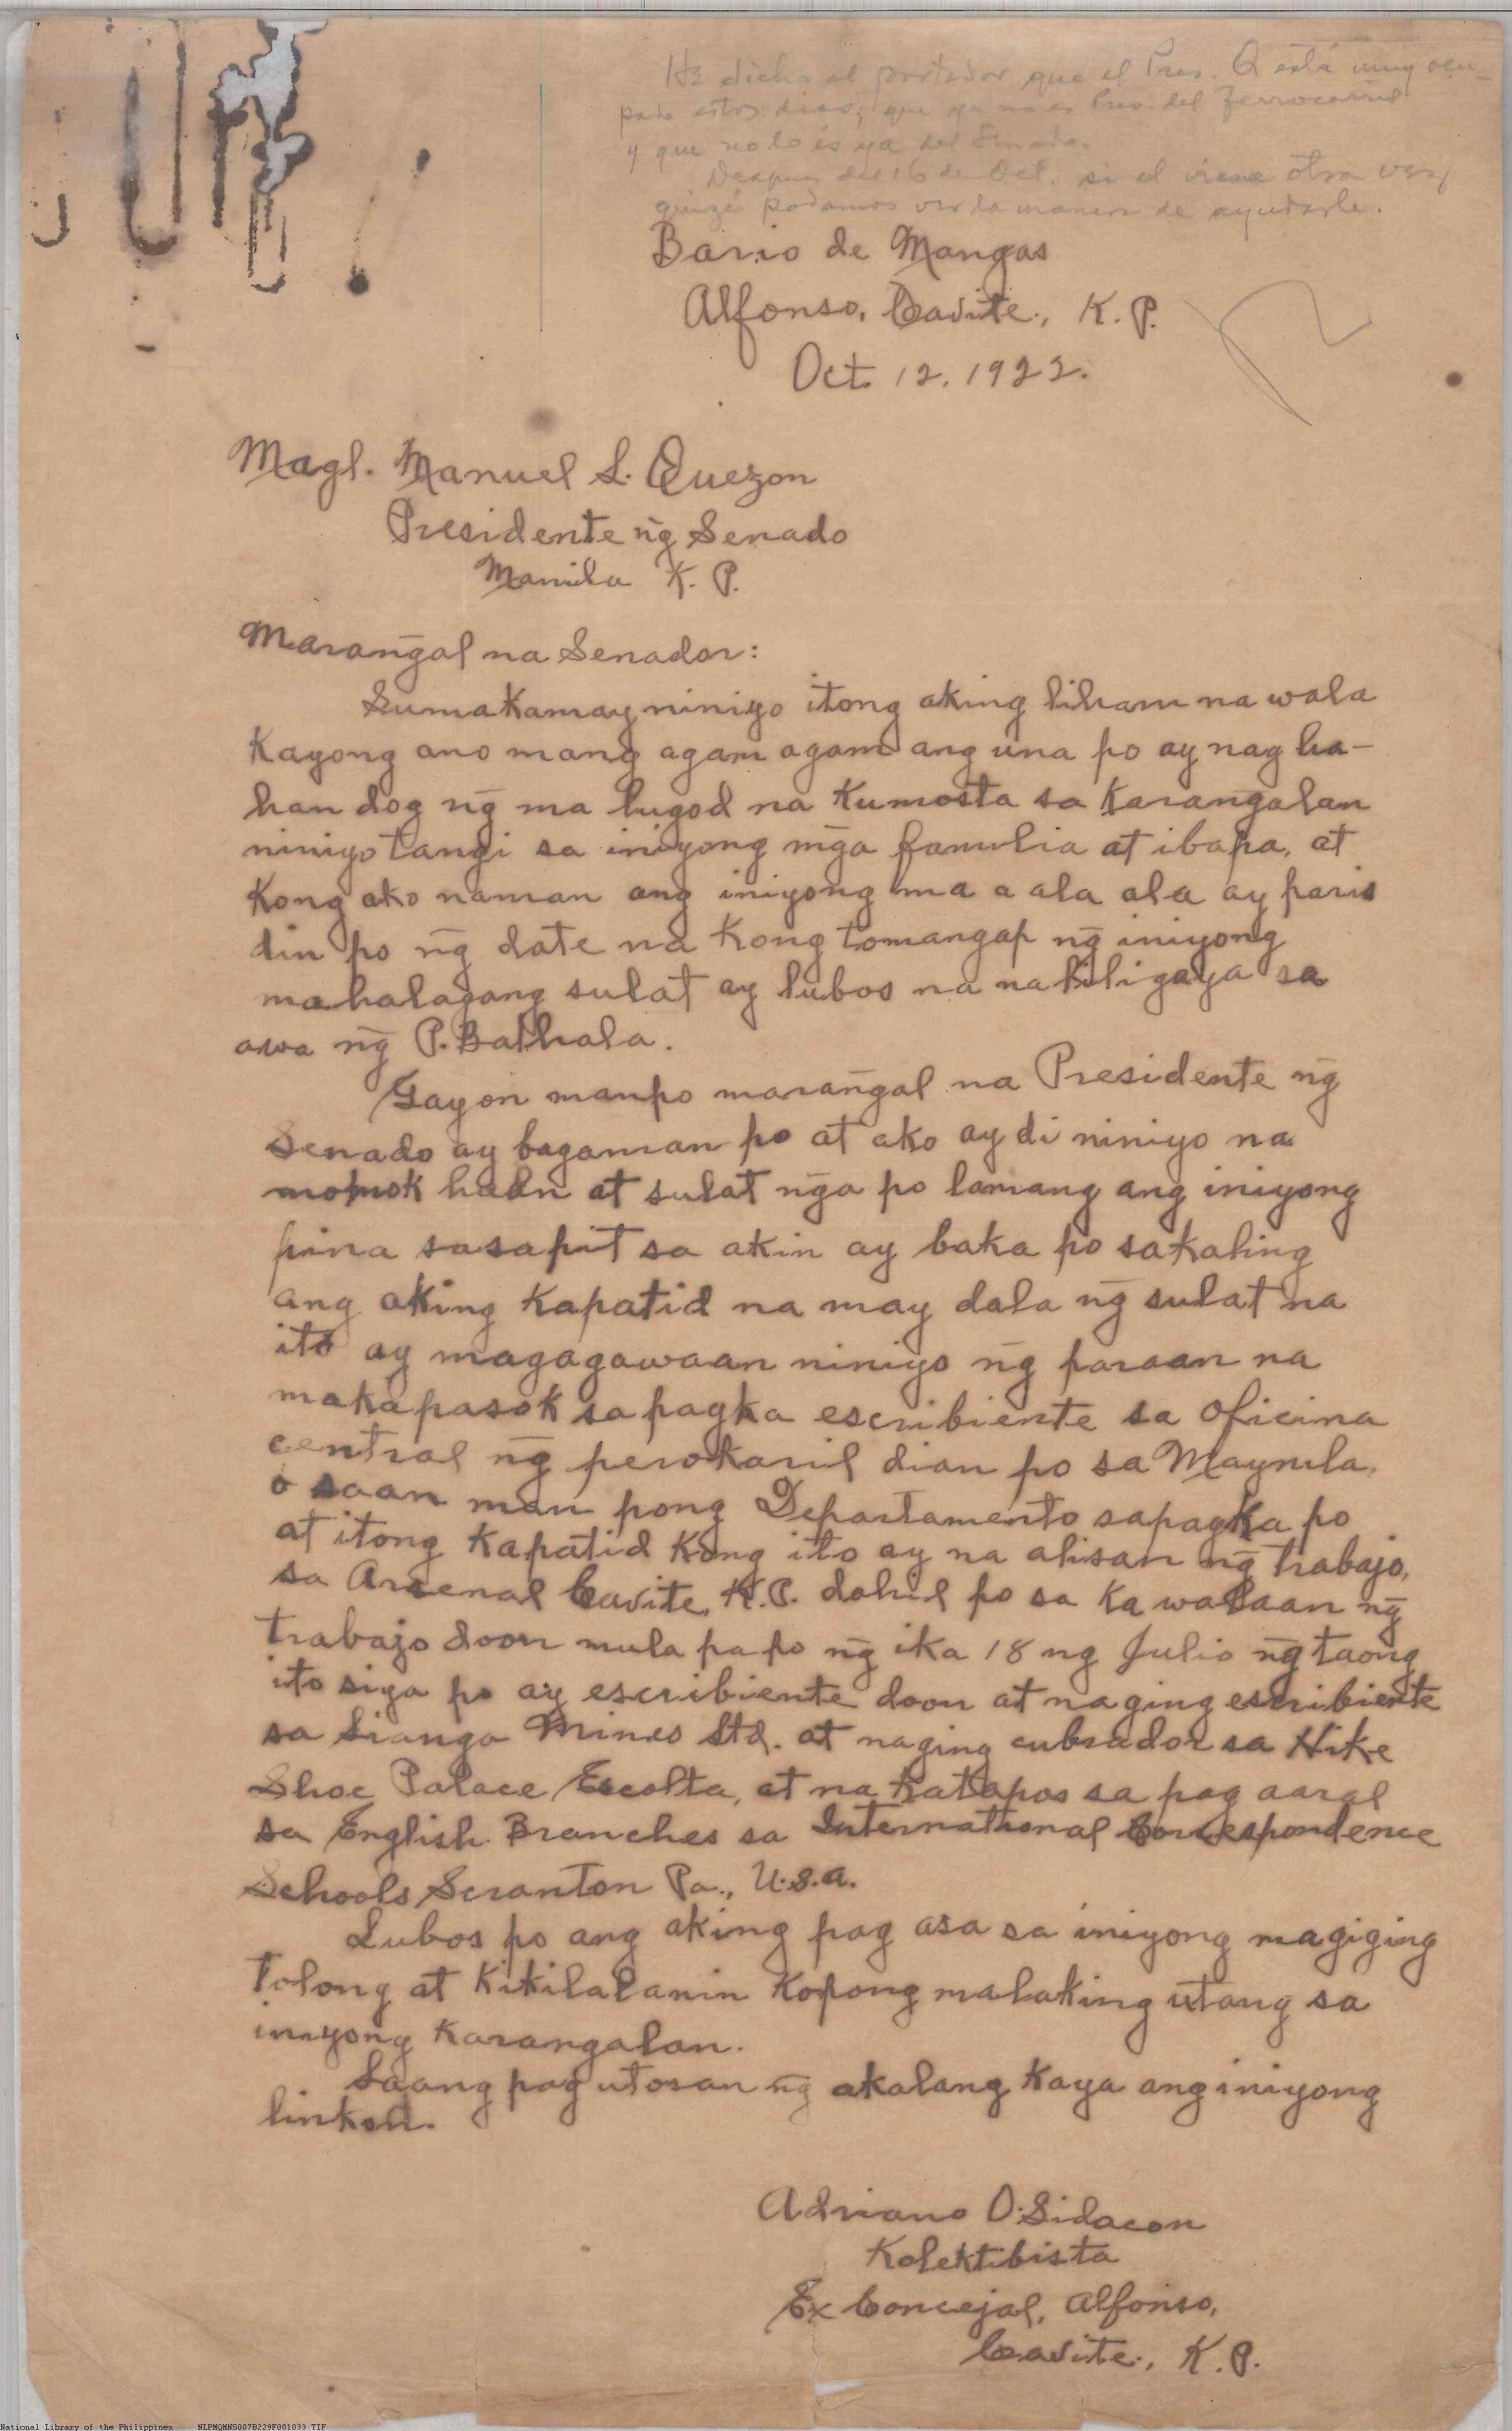 He dicho al portador que el Pres. Q está muy ocu-
pado estos dias; que ya no es Pres. del Ferrocarril
y que no lo és ya del Senado.
Despues del 16 de Oct. si el viene otra vez,
quizá podamos ver la manera de ayudarle.
Bario de Mangas
Alfonso, Cavite., K. P.
Oct. 12, 1922.
Magl. Manuel L. Quezon
Presidente n̄g Senado
Manila K. P.
Maran̄gal na Senador:
Sumakamay niniyo itong aking liham na wala
Kayong ano mang agam agam ang una po ay nag ha-
han dog n̄g ma lugod na Kumosta sa Karan̄galan
niniyo tangi sa iniyong mḡa familia at ibapa, at
Kong ako naman ang iniyong ma a ala ala ay paris
din po n̄g date na Kong tomangap n̄g iniyong
mahalagang sulat ay lubos na nakiligaya sa
awa n̄g P. Bathala.
Gayon manpo maran̄gal na Presidente n̄g
Senado ay bagaman po at ako ay di niniyo na
mopmok haan at sulat n̄ga po lamang ang iniyong
pina sasapit sa akin ay baka po sakaling
ang aking Kapatid na may dala n̄g sulat na
ito ay magagawaan niniyo n̄g paraan na
makapasok sa pagka escribiente sa oficina
central n̄g perokaril dian po sa Maynila,
o saan man pong Departamento sapagka po
at itong Kapatid Kong ito ay na alisan n̄g trabajo,
sa Arsenal Cavite, K.P. dahil po sa ka walaan n̄g
trabajo doon mula pa po n̄g ika 18 ng Julio n̄g taong
ito siya po ay escribiente doon at naging escribiente
sa Sianga Mines Ltd. at naging cubrador sa Hike
Shoe Palace Escolta, at na Katapos sa pag aaral
sa English Branches sa International Correspondence
Schools Scranton Pa., U.S.A.
Lubos po ang aking pag asa sa iniyong magiging
tolong at Kikilalanin Kopong malaking utang sa
iniyong Karangalan.
Saang pag utosan n̄g akalang Kaya ang iniyong
linkod.
Adriano O. Sidacon
Kolektibista
Ex Concejal, Alfonso,
Cavite., K. P.
National Library of the Philippines NLPMQMNS007B229F001033.TIF